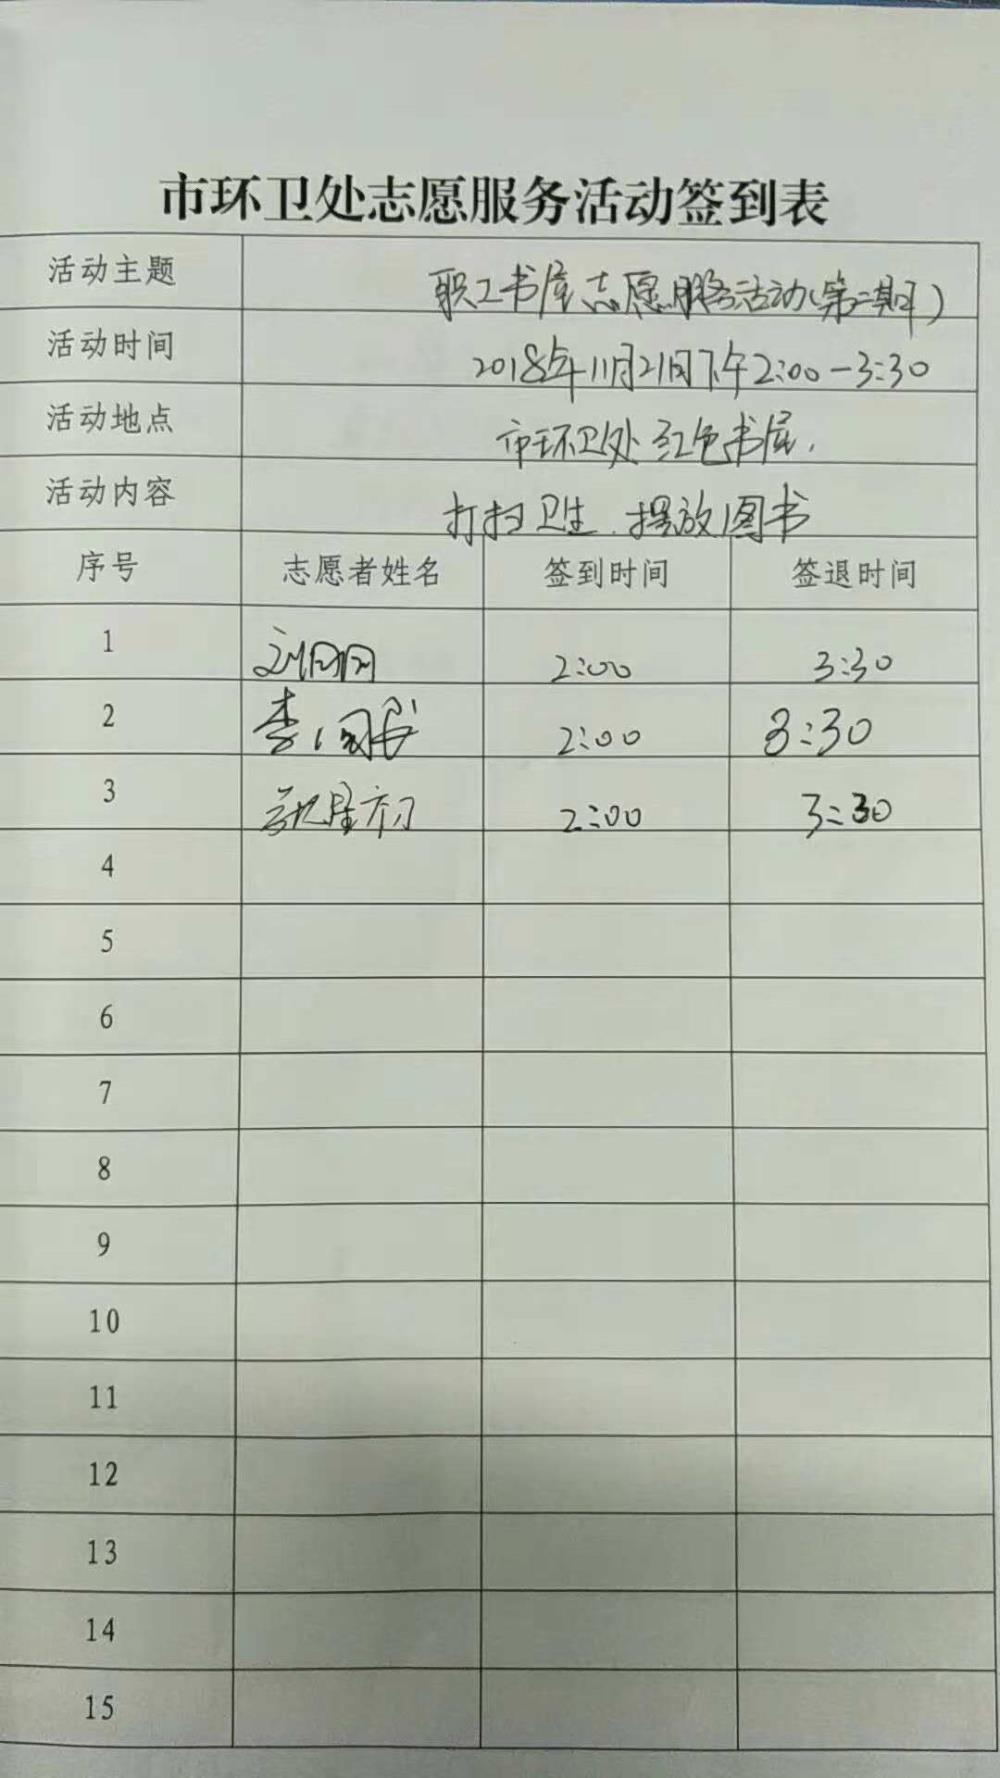 市环卫处志愿服务活动签到表
活动主题 职工书屋志愿服务活动(第二期)
活动时间 2018年11月21日下午2:00-3:30
活动地点 市环卫处红色书屋.
活动内容 打扫卫生、摆放图书
序号 志愿者姓名 签到时间 签退时间
1 2:00 3:30
2 李 2:00 3:30
3 2:00 3:30
4
5
6
7
8
9
10
11
12
13
14
15